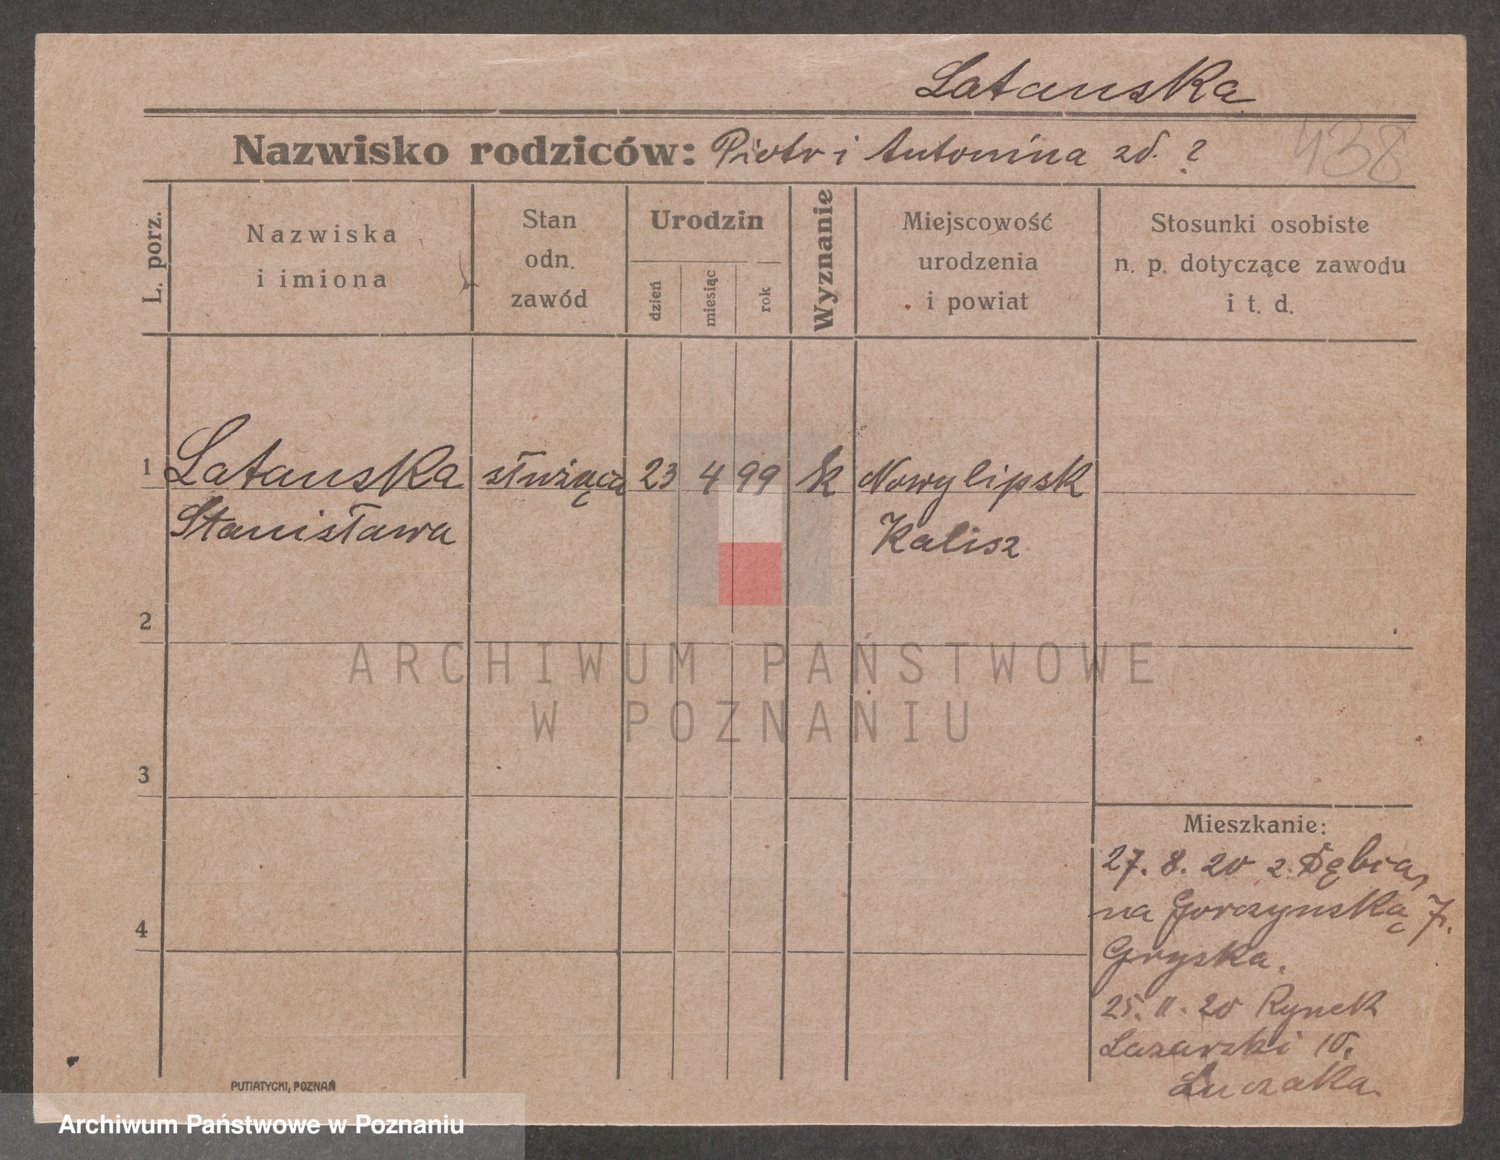 Latanska
Nazwisko rodziców: Piotr i Antonina zd. ?
438
L. porz.
Nazwiska
i imiona
Stan
odn.
zawód
Urodzin
dzień
miesiąc
rok
Wyznanie
Miejscowość
urodzenia
i powiat
Stosunki osobiste
n. p. dotyczące zawodu
i t. d.
1 Latanska służąca 23 4 99 k Nowylipsk
Stanisława Kalisz
2
ARCHIWUM PAŃSTWOWE
W POZNANIU
3
Mieszkanie:
27. 8. 20 z Dębia,
na Gorczynską 7.
4
Gryska.
25. 11. 20 Rynek
Lazarski 10.
Luczaka.
PUTIATYCKI, POZNAŃ
Archiwum Państwowe w Poznaniu